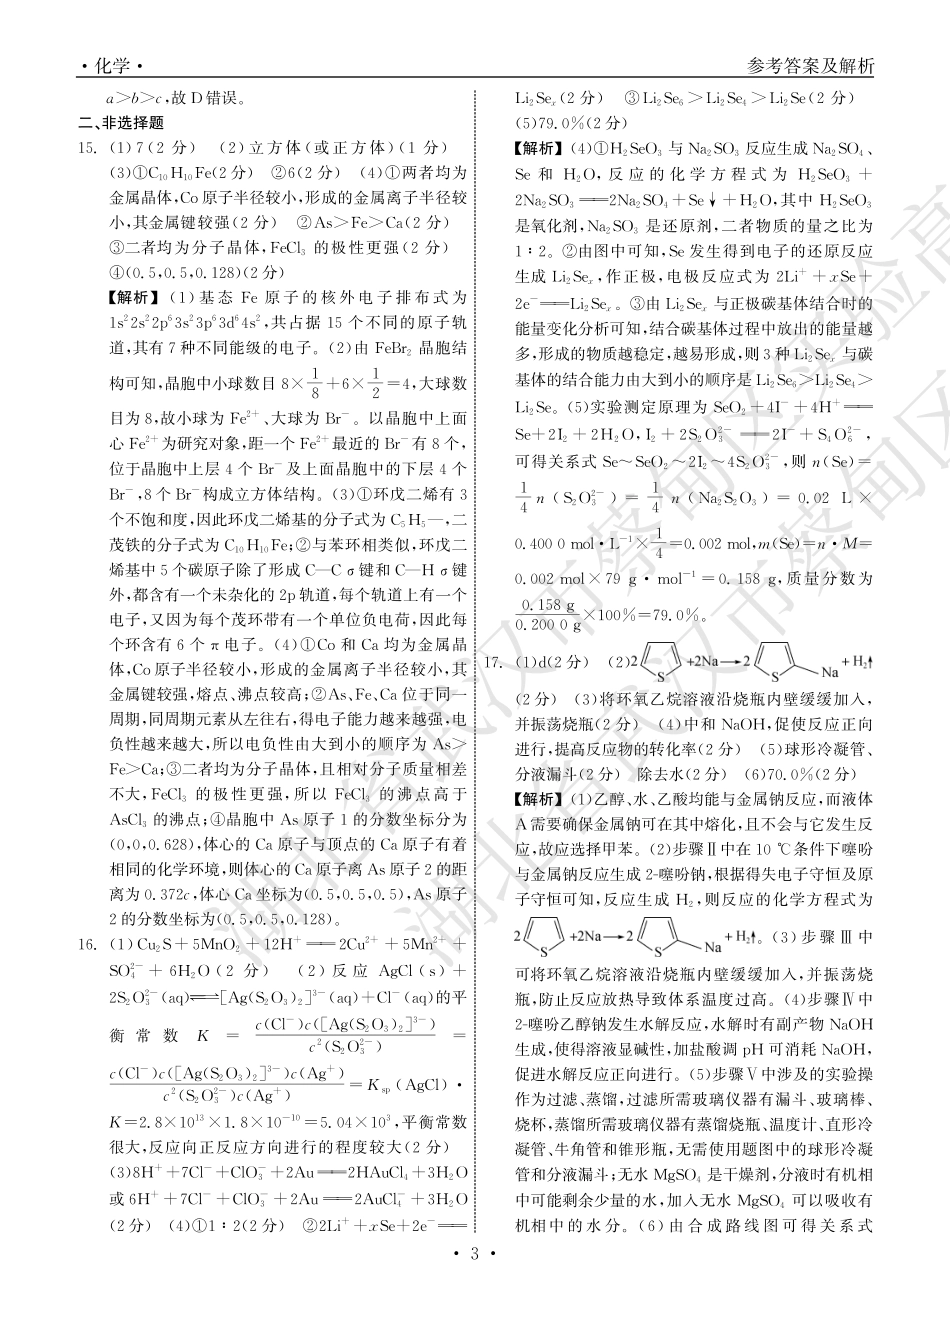 ·化学·
参考答案及解析
a＞b＞c,故D错误。
二、非选择题
15. (1)7(2分) (2)立方体(或正方体)(1分)
(3)①C₁₀H₁₀Fe(2分) ②6(2分) (4)①两者均为
金属晶体,Co原子半径较小,形成的金属离子半径较
小,其金属键较强(2分) ②As＞Fe＞Ca(2分)
③二者均为分子晶体,FeCl₃的极性更强(2分)
④(0.5,0.5,0.128)(2分)
【解析】(1)基态Fe原子的核外电子排布式为
1s²2s²2p⁶3s²3p⁶3d⁶4s²,共占据15个不同的原子轨
道,其有7种不同能级的电子。(2)由FeBr₂晶胞结
构可知,晶胞中小球数目8×1/8+6×1/2=4,大球数
目为8,故小球为Fe²⁺、大球为Br⁻。以晶胞中上面
心Fe²⁺为研究对象,距一个Fe²⁺最近的Br⁻有8个,
位于晶胞中上层4个Br⁻及上面晶胞中的下层4个
Br⁻,8个Br⁻构成立方体结构。(3)①环戊二烯有3
个不饱和度,因此环戊二烯基的分子式为C₅H₅—,二
茂铁的分子式为C₁₀H₁₀Fe;②与苯环相类似,环戊二
烯基中5个碳原子除了形成C—C σ键和C—H σ键
外,都含有一个未杂化的2p轨道,每个轨道上有一个
电子,又因为每个茂环带有一个单位负电荷,因此每
个环含有6个π电子。(4)①Co和Ca均为金属晶
体,Co原子半径较小,形成的金属离子半径较小,其
金属键较强,熔点、沸点较高;②As、Fe、Ca位于同一
周期,同周期元素从左往右,得电子能力越来越强,电
负性越来越大,所以电负性由大到小的顺序为As＞
Fe＞Ca;③二者均为分子晶体,且相对分子质量相差
不大,FeCl₃的极性更强,所以FeCl₃的沸点高于
AsCl₃的沸点;④晶胞中As原子1的分数坐标分为
(0,0,0.628),体心的Ca原子与顶点的Ca原子有着
相同的化学环境,则体心的Ca原子离As原子2的距
离为0.372c,体心Ca坐标为(0.5,0.5,0.5),As原子
2的分数坐标为(0.5,0.5,0.128)。
16. (1)Cu₂S+5MnO₂+12H⁺══2Cu²⁺+5Mn²⁺+
SO₄²⁻+6H₂O(2分) (2)反应AgCl(s)+
2S₂O₃²⁻(aq)⇌[Ag(S₂O₃)₂]³⁻(aq)+Cl⁻(aq)的平
衡常数K=c(Cl⁻)c([Ag(S₂O₃)₂]³⁻)/c²(S₂O₃²⁻)=
c(Cl⁻)c([Ag(S₂O₃)₂]³⁻)c(Ag⁺)/c²(S₂O₃²⁻)c(Ag⁺)=Ksp(AgCl)·
K=2.8×10¹³×1.8×10⁻¹⁰=5.04×10³,平衡常数
很大,反应向正反应方向进行的程度较大(2分)
(3)8H⁺+7Cl⁻+ClO₃⁻+2Au══2HAuCl₄+3H₂O
或6H⁺+7Cl⁻+ClO₃⁻+2Au══2AuCl₄⁻+3H₂O
(2分) (4)①1∶2(2分) ②2Li⁺+xSe+2e⁻══
Li₂Seₓ(2分) ③Li₂Se₆＞Li₂Se₄＞Li₂Se(2分)
(5)79.0%(2分)
【解析】(4)①H₂SeO₃与Na₂SO₃反应生成Na₂SO₄、
Se和H₂O,反应的化学方程式为H₂SeO₃+
2Na₂SO₃══2Na₂SO₄+Se↓+H₂O,其中H₂SeO₃
是氧化剂,Na₂SO₃是还原剂,二者物质的量之比为
1∶2。②由图中可知,Se发生得到电子的还原反应
生成Li₂Seₓ,作正极,电极反应式为2Li⁺+xSe+
2e⁻══Li₂Seₓ。③由Li₂Seₓ与正极碳基体结合时的
能量变化分析可知,结合碳基体过程中放出的能量越
多,形成的物质越稳定,越易形成,则3种Li₂Seₓ与碳
基体的结合能力由大到小的顺序是Li₂Se₆＞Li₂Se₄＞
Li₂Se。(5)实验测定原理为SeO₂+4I⁻+4H⁺══
Se+2I₂+2H₂O,I₂+2S₂O₃²⁻══2I⁻+S₄O₆²⁻,
可得关系式Se～SeO₂～2I₂～4S₂O₃²⁻,则n(Se)=
1/4 n(S₂O₃²⁻)=1/4 n(Na₂S₂O₃)=0.02 L×
0.400 0 mol·L⁻¹×1/4=0.002 mol,m(Se)=n·M=
0.002 mol×79 g·mol⁻¹=0.158 g,质量分数为
0.158 g/0.200 0 g×100%=79.0%。
17. (1)d(2分) (2)2 S +2Na→2 S Na +H₂↑
(2分) (3)将环氧乙烷溶液沿烧瓶内壁缓缓加入,
并振荡烧瓶(2分) (4)中和NaOH,促使反应正向
进行,提高反应物的转化率(2分) (5)球形冷凝管、
分液漏斗(2分) 除去水(2分) (6)70.0%(2分)
【解析】(1)乙醇、水、乙酸均能与金属钠反应,而液体
A需要确保金属钠可在其中熔化,且不会与它发生反
应,故应选择甲苯。(2)步骤Ⅱ中在10 ℃条件下噻吩
与金属钠反应生成2-噻吩钠,根据得失电子守恒及原
子守恒可知,反应生成H₂,则反应的化学方程式为
2 S +2Na→2 S Na +H₂↑。(3)步骤Ⅲ中
可将环氧乙烷溶液沿烧瓶内壁缓缓加入,并振荡烧
瓶,防止反应放热导致体系温度过高。(4)步骤Ⅳ中
2-噻吩乙醇钠发生水解反应,水解时有副产物NaOH
生成,使得溶液显碱性,加盐酸调pH可消耗NaOH,
促进水解反应正向进行。(5)步骤Ⅴ中涉及的实验操
作为过滤、蒸馏,过滤所需玻璃仪器有漏斗、玻璃棒、
烧杯,蒸馏所需玻璃仪器有蒸馏烧瓶、温度计、直形冷
凝管、牛角管和锥形瓶,无需使用题图中的球形冷凝
管和分液漏斗;无水MgSO₄是干燥剂,分液时有机相
中可能剩余少量的水,加入无水MgSO₄可以吸收有
机相中的水分。(6)由合成路线图可得关系式
·3·
湖北省武汉市蔡甸区实验高
湖北省武汉市蔡甸区